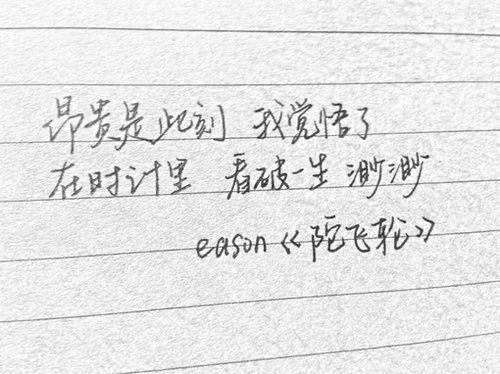 昂贵是此刻 我觉悟了
在时计里 看破一生 渺渺
eason《陀飞轮》